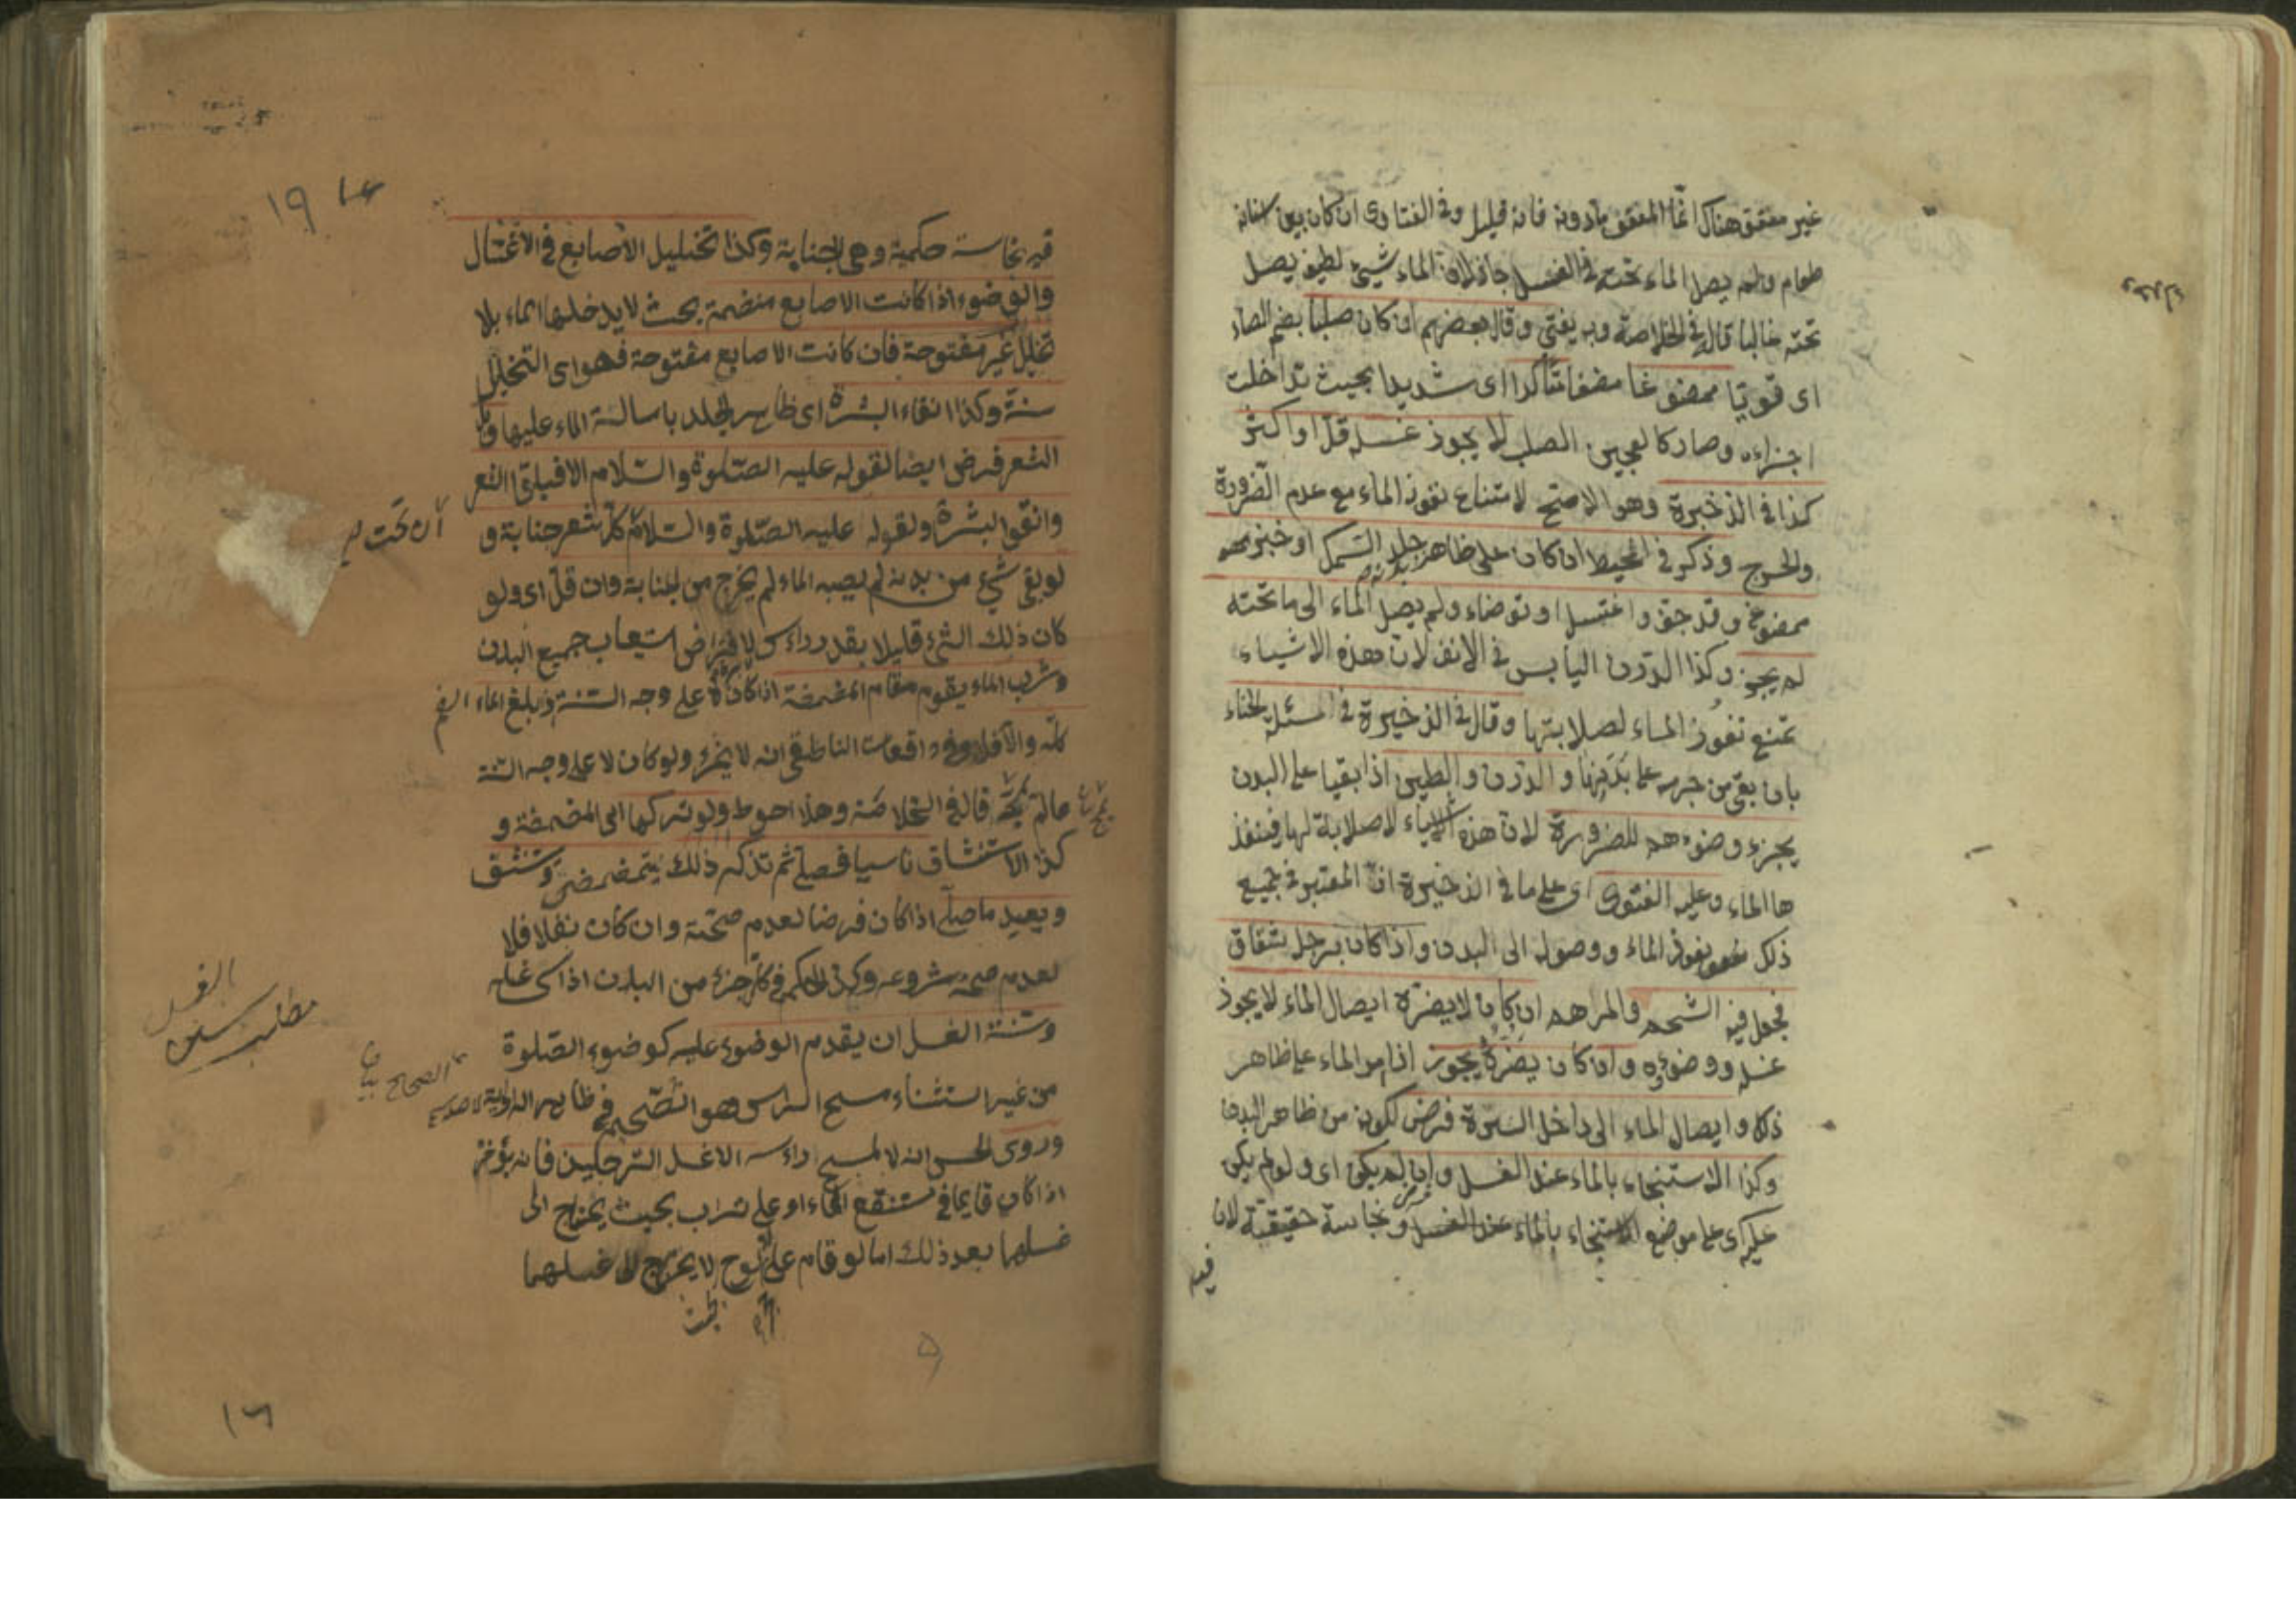 غير معفو هناك انما المعفو مادونه فانه قليل وفى الفتاوى ان كان بين اسنانه
طعام ولم يصل الماء تحته فى الغسل جاز لان الماء شيئ لطيف يصل
تحته غالبا قال فى الخلاصة وبه يفتى وقال بعضهم ان كان صلبا بضم الصاد
اى قويا ممضوغا مضغا متأكدا اى شديدا بحيث تداخلت
اجزاءه وصار كالعجين الصلب لا يجوز غسله قل او اكثر
كذا فى الذخيرة وهو الاصح لامتناع نفوذ الماء مع عدم الضرورة
والحرج وذكر فى المحيط ان كان على ظاهر بدنه جلد السمك او خبز
ممضوغ وقد جف واغتسل او توضاء ولم يصل الماء الى ما تحته
لم يجز وكذا الدرن اليابس فى الانف لان هذه الاشياء
تمنع نفوذ الماء لصلابتها وقال فى الذخيرة فى مسئلة الحناء
بان بقى من جرمه على بدنها والدرن والطين اذا بقيا على البدن
يجزء وضوءهم للضرورة لان هذه الاشياء لا صلابة لها فينفذ
ها الماء وعليه الفتوى اى على ما فى الذخيرة ان المعتبر فى جميع
ذلك نفوذ الماء ووصوله الى البدن واذا كان برجل شقاق
فجعل فيه الشحم والمرهم ان كان لا يضره ايصال الماء لا يجوز
غسله ووضوءه وان كان يضره يجوز اذا مر الماء على ظاهر
ذلك وايصال الماء الى داخل السرة فرض لكونه من ظاهر البدن
وكذا الاستنجاء بالماء عند الغسل وان لم يكن اى ولو لم يكن
عليه اى على موضع الاستنجاء بالماء عند الغسل فرض نجاسة حقيقية لان
فيه
١٩
فيه نجاسة حكمية وهى الجنابة وكذا تخليل الاصابع فى الاغتسال
والوضوء اذا كانت الاصابع منضمة بحيث لا يدخلها الماء بلا
تخلل غير مفتوحة فان كانت الاصابع مفتوحة فهو اى التخليل
سنة وكذا انقاء البشرة اى ظاهر الجلد باسالة الماء عليها
الشعر فرض ايضا لقوله عليه الصلوة والسلام الا فبلوا الشعر
وانقوا البشرة ولقوله عليه الصلوة والسلام كل شعر جنابة و
ان تحت
لو بقى شيئ من بدنه لم يصبه الماء لم يخرج من الجنابة وان قل اى ولو
كان ذلك الشئ قليلا بقدر رأس لافتراض استيعاب جميع البدن
وشرب الماء يقوم مقام المضمضة اذا كان على وجه السنة وبلغ الماء الفم
كله والا فلا وفى واقعات الناطفى انه لا يخرج ولو كان لا على وجه السنة
مالم يمجه قال فى الخلاصة وهذا احوط ولو تركها اى المضمضة و
كذا الاستنشاق ناسيا فصلى ثم تذكر ذلك يتمضمض ويستنشق
ويعيد ما صلى اذا كان فرضا لعدم صحته وان كان نفلا فلا
لعدم صحة شروعه وكذا الحكم فى كل جزء من البدن اذا غسله
وسنة الغسل ان يقدم الوضوء عليه كوضوء الصلوة
مطلب سنن الغسل
من غير استثناء مسح الرأس وهو الصحيح فى ظاهر الرواية
وروى الحسن انه لا يمسح رأسه الا غسل الرجلين فانه يؤخر
اذا كان قايما فى مستنقع الماء او على تراب بحيث يحتاج الى
غسلهما بعد ذلك اما لو قام على لوح لا يحتاج الى غسلهما
١٦